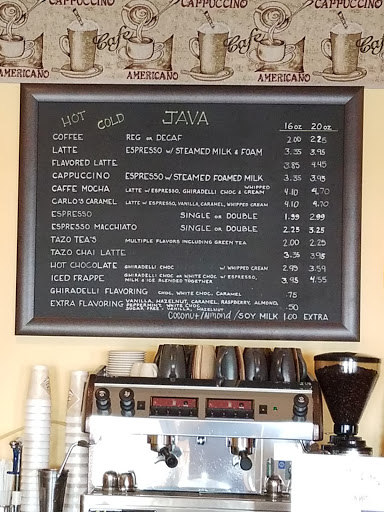 CAPPUCCINO CAPPUCCINO CAPPUCCINO
Cafe Cafe Cafe
AMERICANO AMERICANO AMERICANO
HOT COLD JAVA
16 oz 20 oz
COFFEE REG OR DECAF 2.00 2.25
LATTE ESPRESSO w/ STEAMED MILK & FOAM 3.35 3.95
FLAVORED LATTE 3.85 4.45
CAPPUCCINO ESPRESSO w/ STEAMED FOAMED MILK 3.35 3.95
CAFFE MOCHA LATTE w/ ESPRESSO, GHIRADELLI CHOC & WHIPPED CREAM 4.10 4.70
CARLO'S CARAMEL LATTE w/ ESPRESSO, VANILLA, CARAMEL, WHIPPED CREAM 4.10 4.70
ESPRESSO SINGLE OR DOUBLE 1.99 2.99
ESPRESSO MACCHIATO SINGLE OR DOUBLE 2.25 3.25
TAZO TEA'S MULTIPLE FLAVORS INCLUDING GREEN TEA 2.00 2.25
TAZO CHAI LATTE 3.35 3.95
HOT CHOCOLATE GHIRADELLI CHOC w/ WHIPPED CREAM 2.95 3.59
ICED FRAPPE GHIRADELLI CHOC OR WHITE CHOC w/ ESPRESSO,
MILK & ICE BLENDED TOGETHER 3.95 4.55
GHIRADELLI FLAVORING CHOC, WHITE CHOC, CARAMEL .75
EXTRA FLAVORING VANILLA, HAZELNUT, CARAMEL, RASPBERRY, ALMOND,
PEPPERMINT, WHITE CHOC
SUGAR FREE - VANILLA, HAZELNUT .50
Coconut/Almond/SOY MILK 1.00 EXTRA